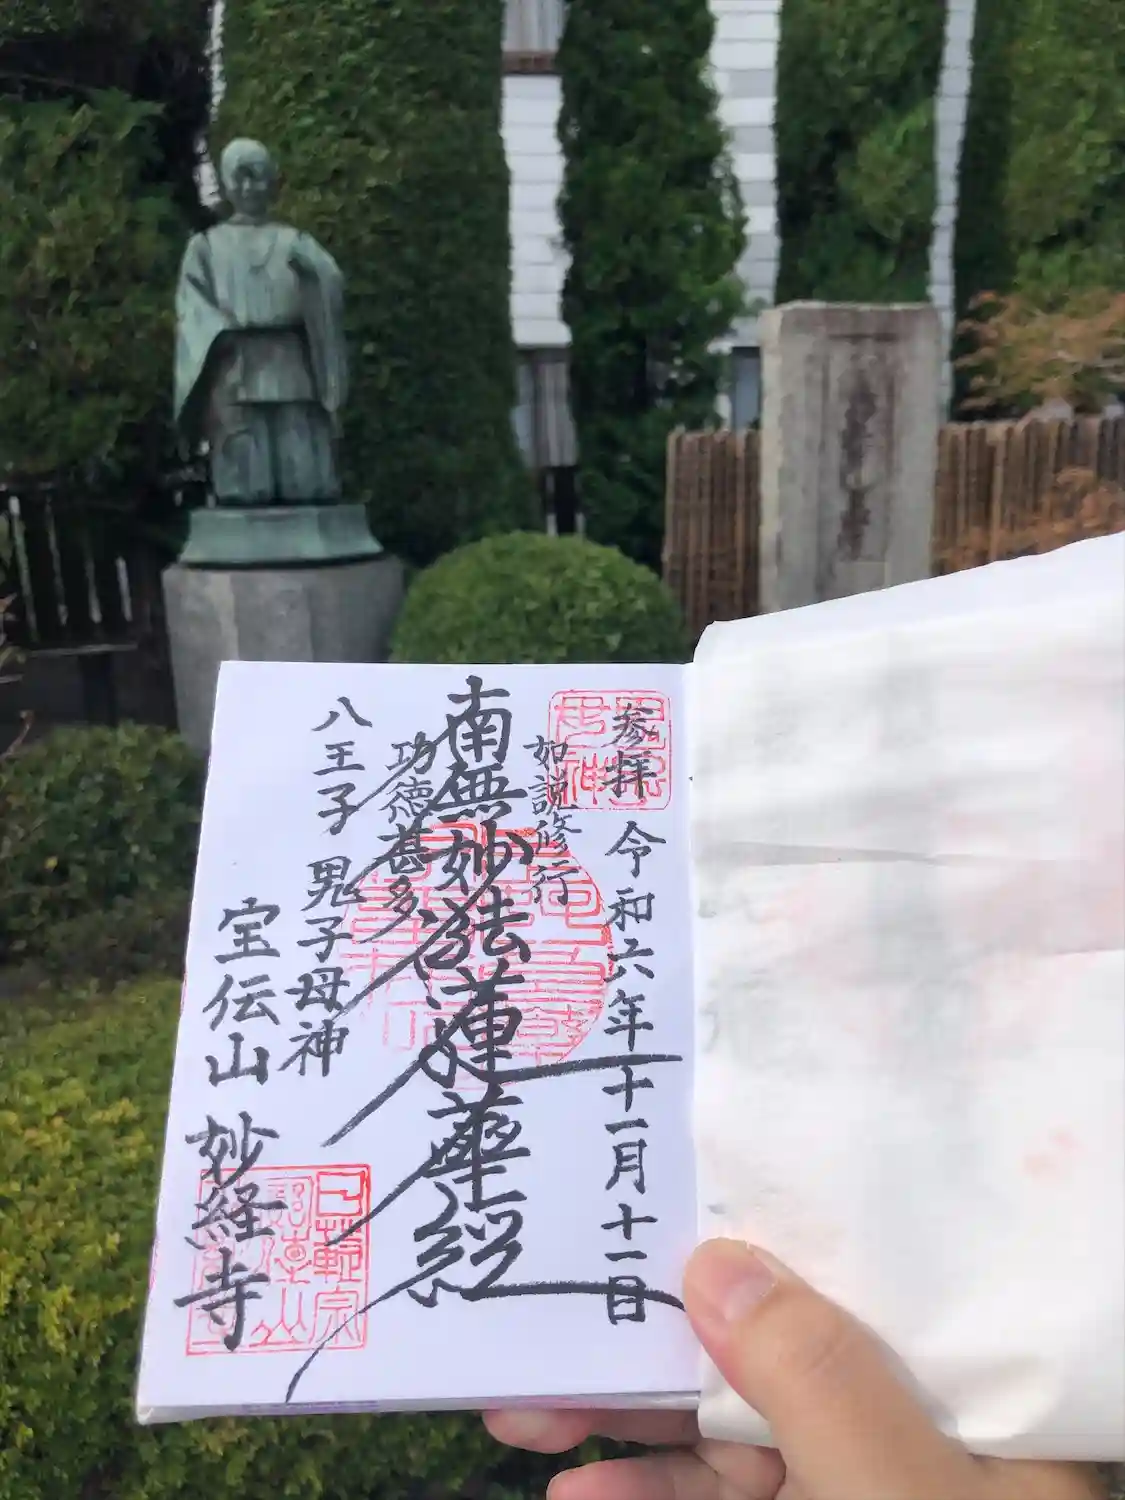 参拝 令和六年十一月十一日
如説修行
南無妙法蓮華経
功徳甚多
八王子 鬼子母神
宝伝山 妙経寺